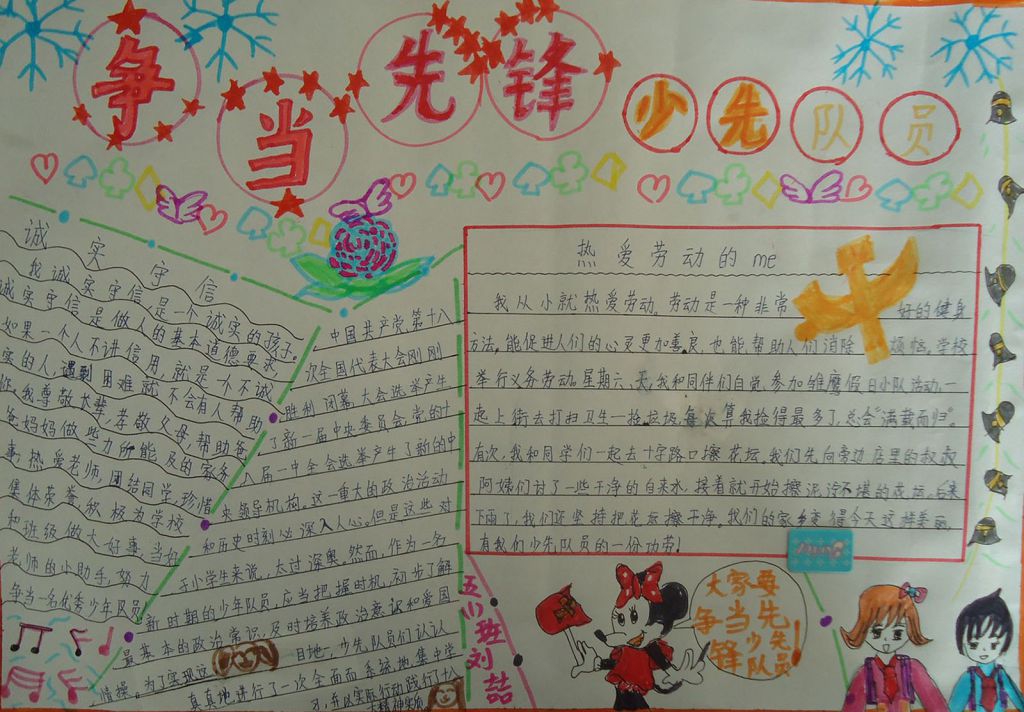 争当先锋少先队员
诚实守信
我诚实守信是一个诚实的孩子。
诚实守信是做人的基本道德要求
如果一个人不讲信用,就是一个不诚
实的人,遇到困难就不会有人帮助
你。我尊敬长辈,孝敬父母,帮助爸
爸妈妈做些力所能及的家务
事,热爱老师,团结同学,珍惜
集体荣誉,积极为学校
和班级做大好事,当好
老师的小助手,努力
争当一名优秀少年队员
中国共产党第十八
次全国代表大会刚刚
胜利闭幕,大会选举产生
了新一届中央委员会,党的十
八届一中全会选举产生了新的中
央领导机构。这一重大的政治活动
和历史时刻必深入人心。但是这些对
于小学生来说,太过深奥。然而,作为一名
新时期的少年队员,应当把握时机,初步了解
最基本的政治常识,及时培养政治意识和爱国
情操。为了实现这 目地,少先队员们认认
真真地进行了一次全面而系统地集中学
习,并以实际行动践行十八
大精神实质
热爱劳动的me
我从小就热爱劳动。劳动是一种非常 好的健身
方法。能促进人们的心灵更加善良,也能帮助人们消除 烦恼。学校
举行义务劳动。星期六、天,我和同伴们自觉参加雏鹰假日小队活动,一
起上街去打扫卫生一捡垃圾,每次算我捡得最多了,总会“满载而归”。
有次,我和同学们一起去十字路口擦花坛。我们先向旁边店里的叔叔
阿姨们讨了一些干净的自来水,接着就开始擦泥泞不堪的花坛。后来
下雨了,我们还坚持把花坛擦干净。我们的家乡变得今天这样美丽,
有我们少先队员的一份功劳!
五(1)班刘喆
大家要
争当先
锋少先
队员!